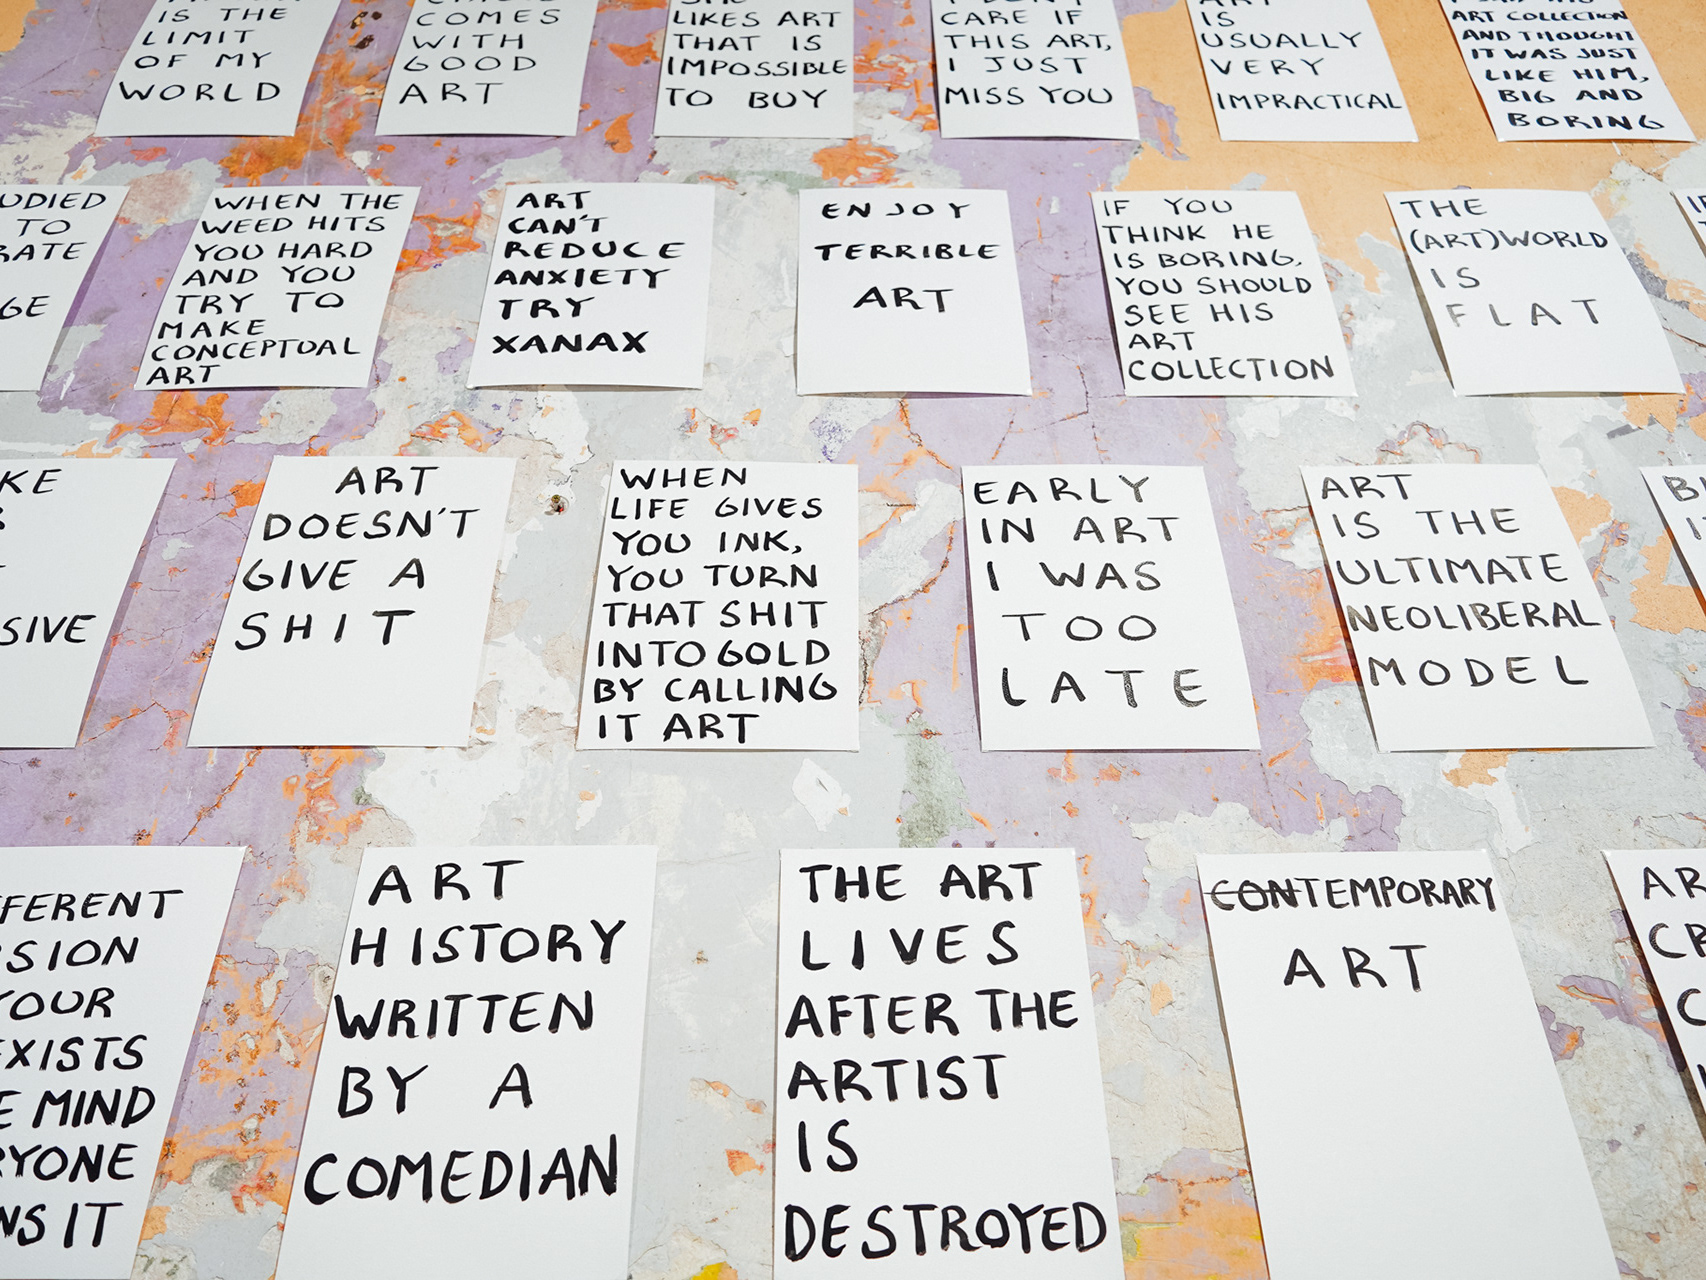 IS THE
LIMIT
OF MY
WORLD
COMES
WITH
GOOD
ART
SHE
LIKES ART
THAT IS
IMPOSSIBLE
TO BUY
I DON'T
CARE IF
THIS ART,
I JUST
MISS YOU
ART
IS
USUALLY
VERY
IMPRACTICAL
ART COLLECTION
AND THOUGHT
IT WAS JUST
LIKE HIM,
BIG AND
BORING
UDIED
TO
RATE
GE
WHEN THE
WEED HITS
YOU HARD
AND YOU
TRY TO
MAKE
CONCEPTUAL
ART
ART
CAN'T
REDUCE
ANXIETY
TRY
XANAX
ENJOY
TERRIBLE
ART
IF YOU
THINK HE
IS BORING,
YOU SHOULD
SEE HIS
ART
COLLECTION
THE
(ART)WORLD
IS
FLAT
KE
SIVE
ART
DOESN'T
GIVE A
SHIT
WHEN
LIFE GIVES
YOU INK,
YOU TURN
THAT SHIT
INTO GOLD
BY CALLING
IT ART
EARLY
IN ART
I WAS
TOO
LATE
ART
IS THE
ULTIMATE
NEOLIBERAL
MODEL
FFERENT
SION
YOUR
EXISTS
E MIND
RYONE
NS IT
ART
HISTORY
WRITTEN
BY A
COMEDIAN
THE ART
LIVES
AFTER THE
ARTIST
IS
DESTROYED
CONTEMPORARY
ART
AR
CR
C